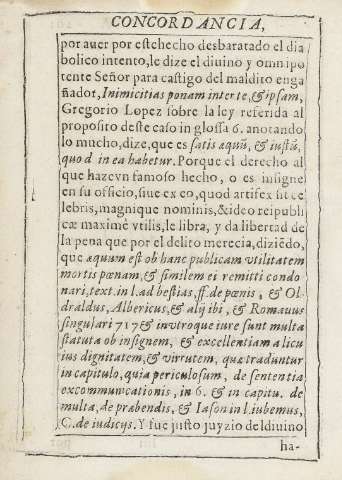 CONCORDANCIA,
por auer por este hecho desbaratado el dia
bolico intento, le dize el diuino y omnipo
tente Señor para castigo del maldito enga
ñador, Inimicitias ponam inter te, & ipsam,
Gregorio Lopez sobre la ley referida al
proposito deste caso in glossa 6. anotando
lo mucho, dize, que es satis æquũ, & iustũ,
quod in ea habetur. Porque el derecho al
que haze vn famoso hecho, o es insigne
en su officio, siue ex eo, quod artifex sit ce
lebris, magnique nominis, & ideo reipubli
cæ maximè vtilis, le libra, y da libertad de
la pena que por el delito merecia, diziẽdo,
que æquum est ob hanc publicam vtilitatem
mortis pœnam, & similem ei remitti condo
nari, text. in l. ad bestias, ff. de pœnis, & Ol
draldus, Albericus, & alij ibi, & Romanus
singulari 717 & in vtroque iure sunt multa
statuta ob insignem, & excellentiam alicu
ius dignitatem, & virtutem, quæ traduntur
in capitulo, quia periculosum, de sententia
excommunicationis, in 6. & in capitu. de
multa, de præbendis, & Iason in l. iubemus,
C. de iudicijs. Y fue justo juyzio del diuino
ha-